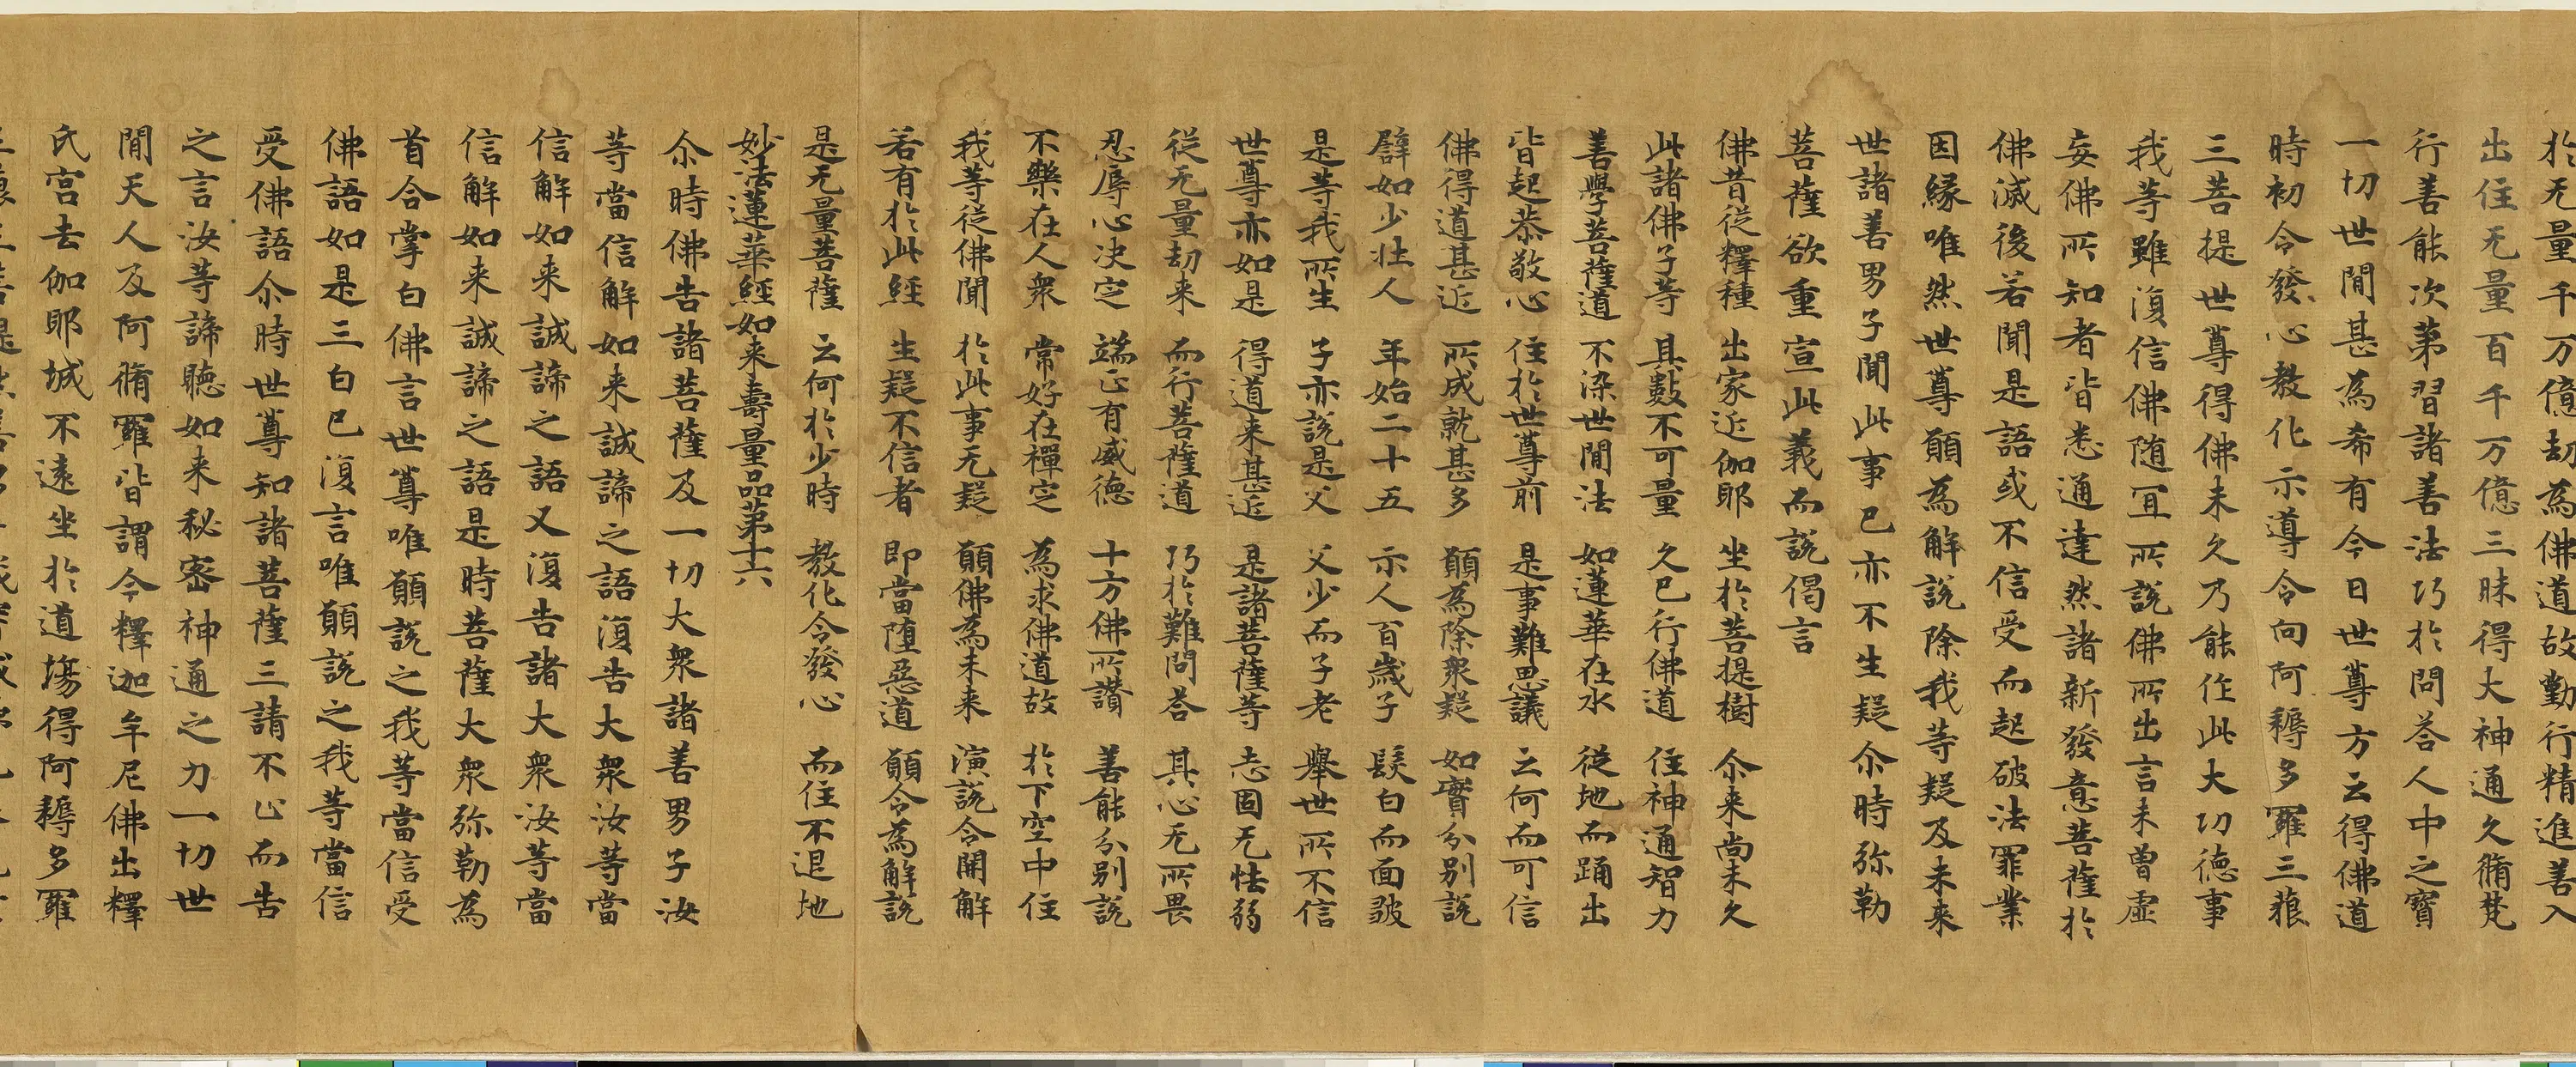 於无量千万億劫為佛道故勤行精進善入
出住无量百千万億三昧得大神通久脩梵
行善能次第習諸善法巧於問荅人中之寶
一切世閒甚為希有今日世尊方云得佛道
時初令發心教化示導令向阿耨多羅三藐
三菩提世尊得佛未久乃能作此大功德事
我等雖復信佛随冝所說佛所出言未曾虛
妄佛所知者皆悉通達然諸新發意菩薩於
佛滅後若聞是語或不信受而起破法罪業
因緣唯然世尊願為解說除我等疑及未来
世諸善男子聞此事已亦不生疑尒時弥勒
菩薩欲重宣此義而說偈言
佛昔從釋種 出家近伽耶 坐於菩提樹 尒来尚未久
此諸佛子等 其數不可量 久已行佛道 住神通智力
善學菩薩道 不染世閒法 如蓮華在水 從地而踊出
皆起恭敬心 住於世尊前 是事難思議 云何而可信
佛得道甚近 所成就甚多 願為除衆疑 如實分別說
譬如少壯人 年始二十五 示人百歲子 髮白而面皺
是等我所生 子亦說是父 父少而子老 舉世所不信
世尊亦如是 得道来甚近 是諸菩薩等 志固无怯弱
從无量劫来 而行菩薩道 巧於難問荅 其心无所畏
忍辱心决定 端正有威德 十方佛所讚 善能分別說
不樂在人衆 常好在禪定 為求佛道故 於下空中住
我等從佛聞 於此事无疑 願佛為未来 演說令開解
若有於此經 生疑不信者 即當堕惡道 願今為解說
是无量菩薩 云何於少時 教化令發心 而住不退地
妙法蓮華經如来壽量品第十六
尒時佛告諸菩薩及一切大衆諸善男子汝
等當信解如来誠諦之語復告大衆汝等當
信解如来誠諦之語又復告諸大衆汝等當
信解如来誠諦之語是時菩薩大衆弥勒為
首合掌白佛言世尊唯願說之我等當信受
佛語如是三白已復言唯願說之我等當信
受佛語尒時世尊知諸菩薩三請不止而告
之言汝等諦聽如来秘密神通之力一切世
閒天人及阿脩羅皆謂今釋迦牟尼佛出釋
氏宮去伽耶城不遠坐於道塲得阿耨多羅